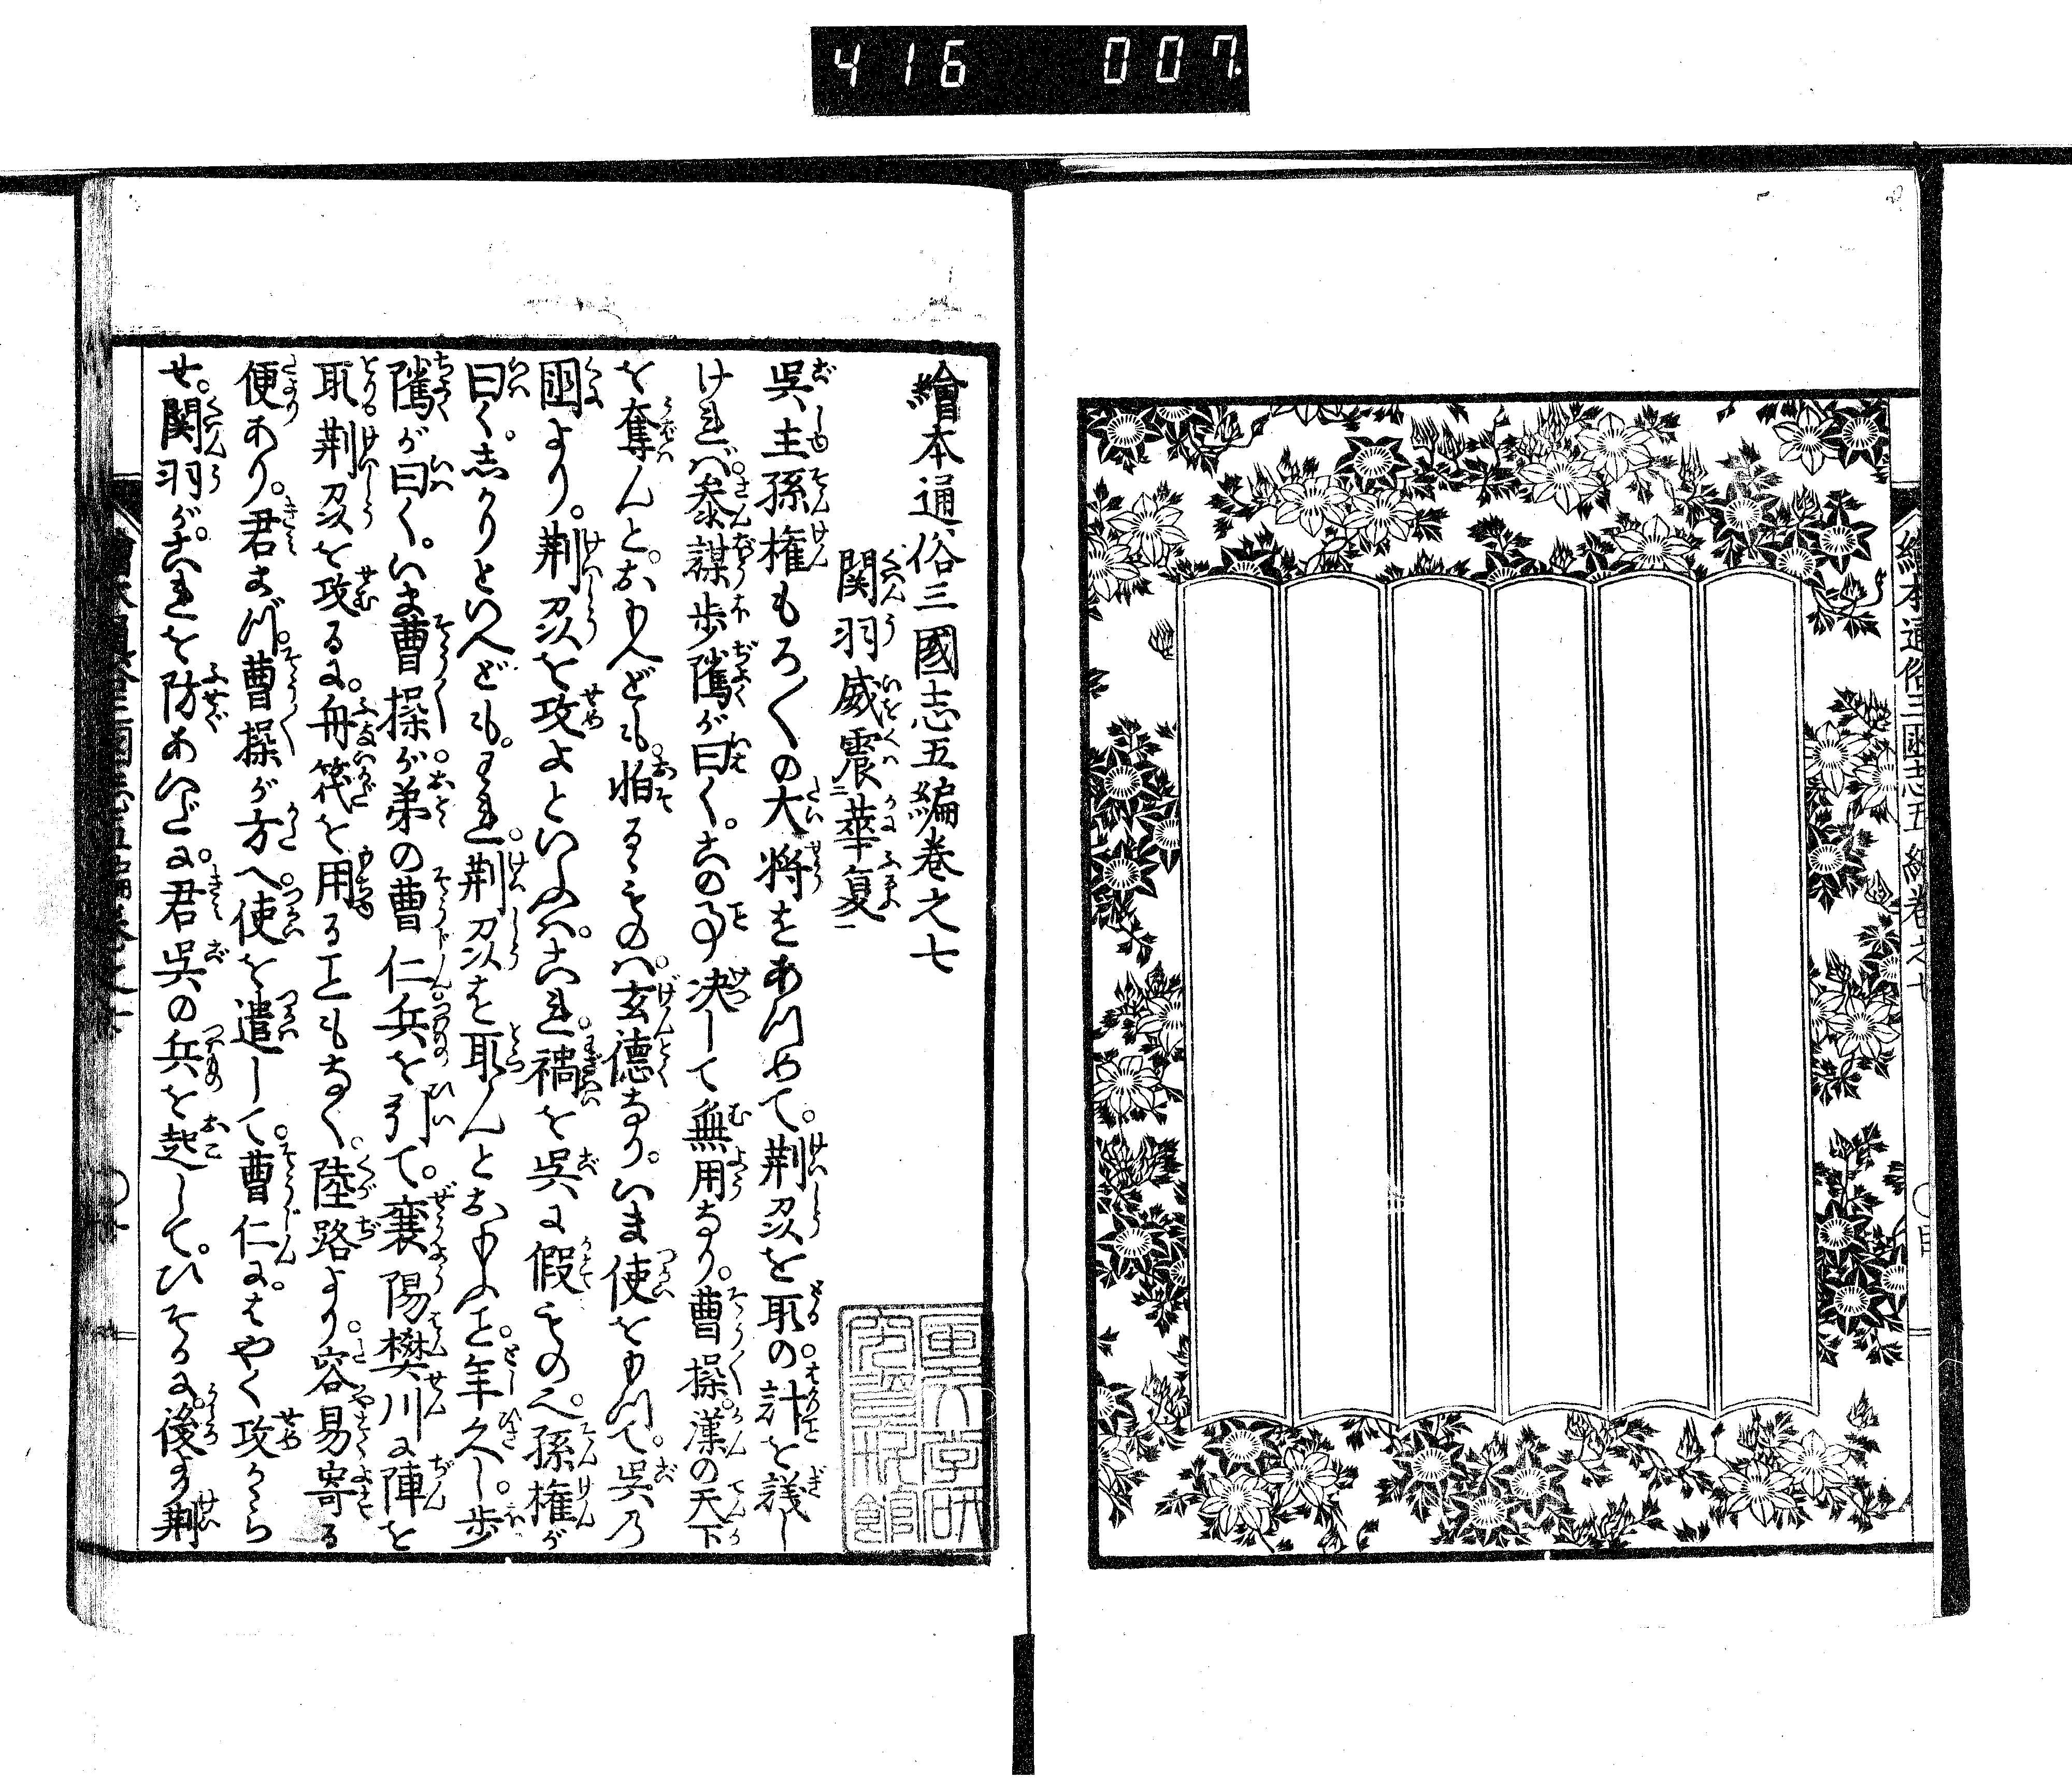 416 007.
繪本通俗三國志五編卷之七
繪本通俗三國志五編卷之七
関羽威震華夏
呉主孫権もろ〳〵の大将をあつめて。荊刕を取の計を議し
ければ。参謀歩隲が曰く。この事決して無用なり。曹操。漢の天下
を奪んと。おもへども。怕るゝものハ。玄徳なり。いま使をもつて。呉乃
国より。荊刕を攻よといふハ。これ禍を呉に假ものへ。孫権が
曰く。しかりといへども。われ。荊刕を取んとおもふこと。年久し。歩
隲が曰く。いま曹操が。弟の曹仁兵を引て。襄陽樊川に陣を
取。荊刕を攻るに。舟筏を用ることもなく。陸路より。容易寄る
便あり。君まづ。曹操が方へ。使を遣して。曹仁に。はやく攻から
せ。関羽が。これを防あいだに。君呉の兵を起して。ひそかに。後より荊